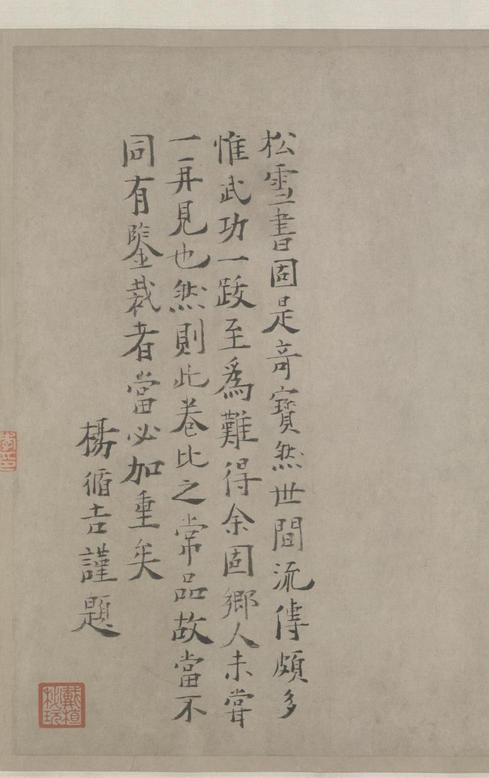 松雪書固是奇寶然世間流傳頗多
惟武功一跋至為難得余固鄉人未嘗
一再見也然則此卷比之常品故當不
同有鑒裁者當必加重矣
楊循吉謹題